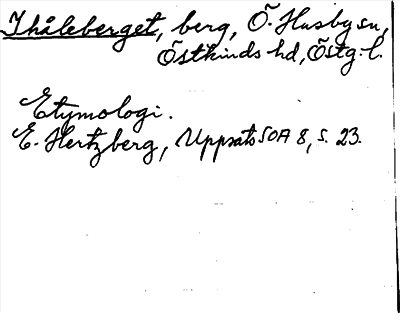 Ihåleberget, berg, Ö. Husby sn,
Östkinds hd, Östg. l.
Etymologi.
E. Hertzberg, Uppsats SOA 8, s. 23.